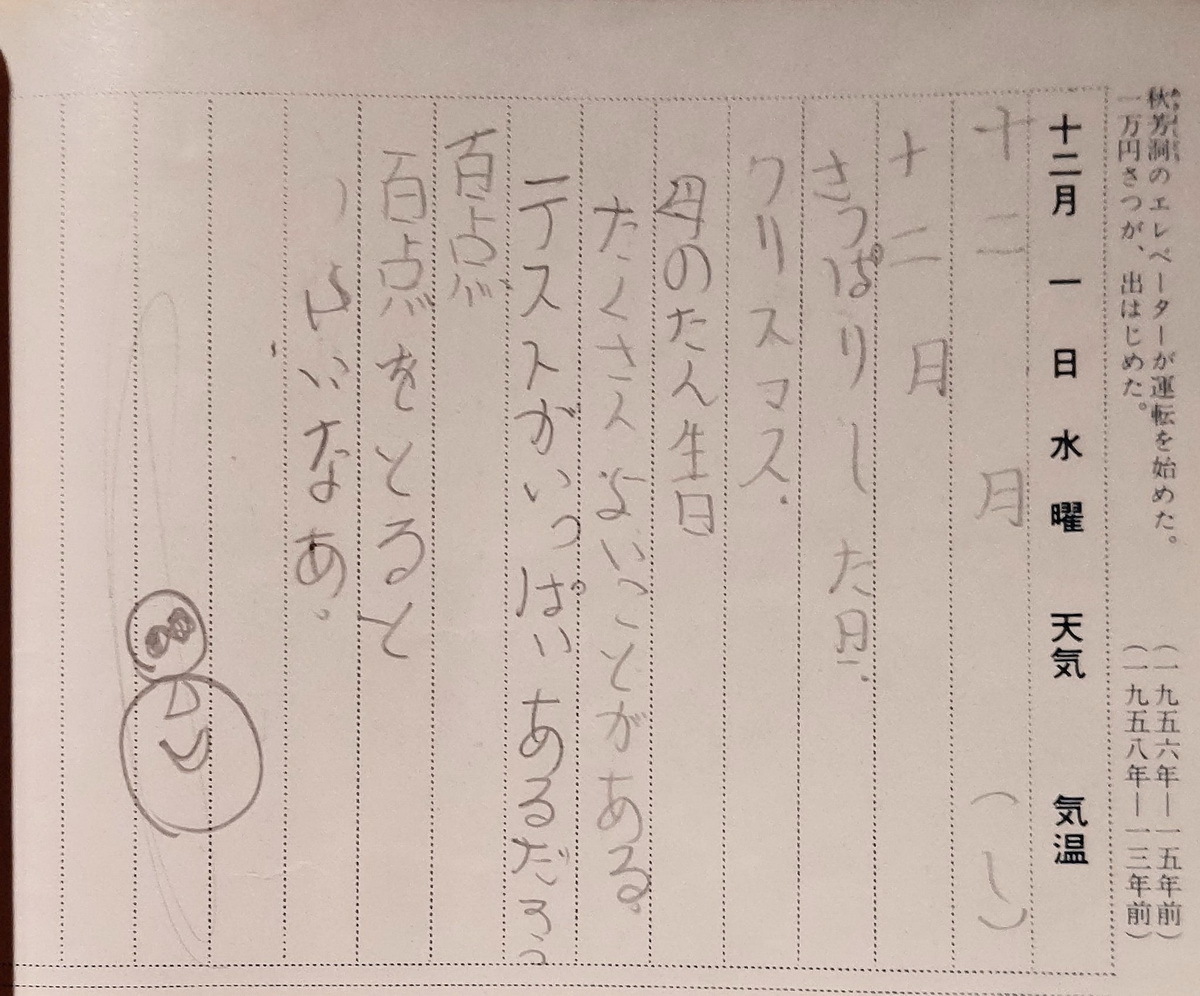 秋芳洞のエレベーターが運転を始めた。(一九五六年―一五年前)
一万円さつが、出はじめた。(一九五八年―一三年前)
十二月一日水曜 天気 気温
十二月(し)
十二日
さっぱりした日.
クリスマス.
母のたん生日
たくさんよいことがある。
テストがいっぱいあるだろう
百点が
百点をとると
いいなあ。